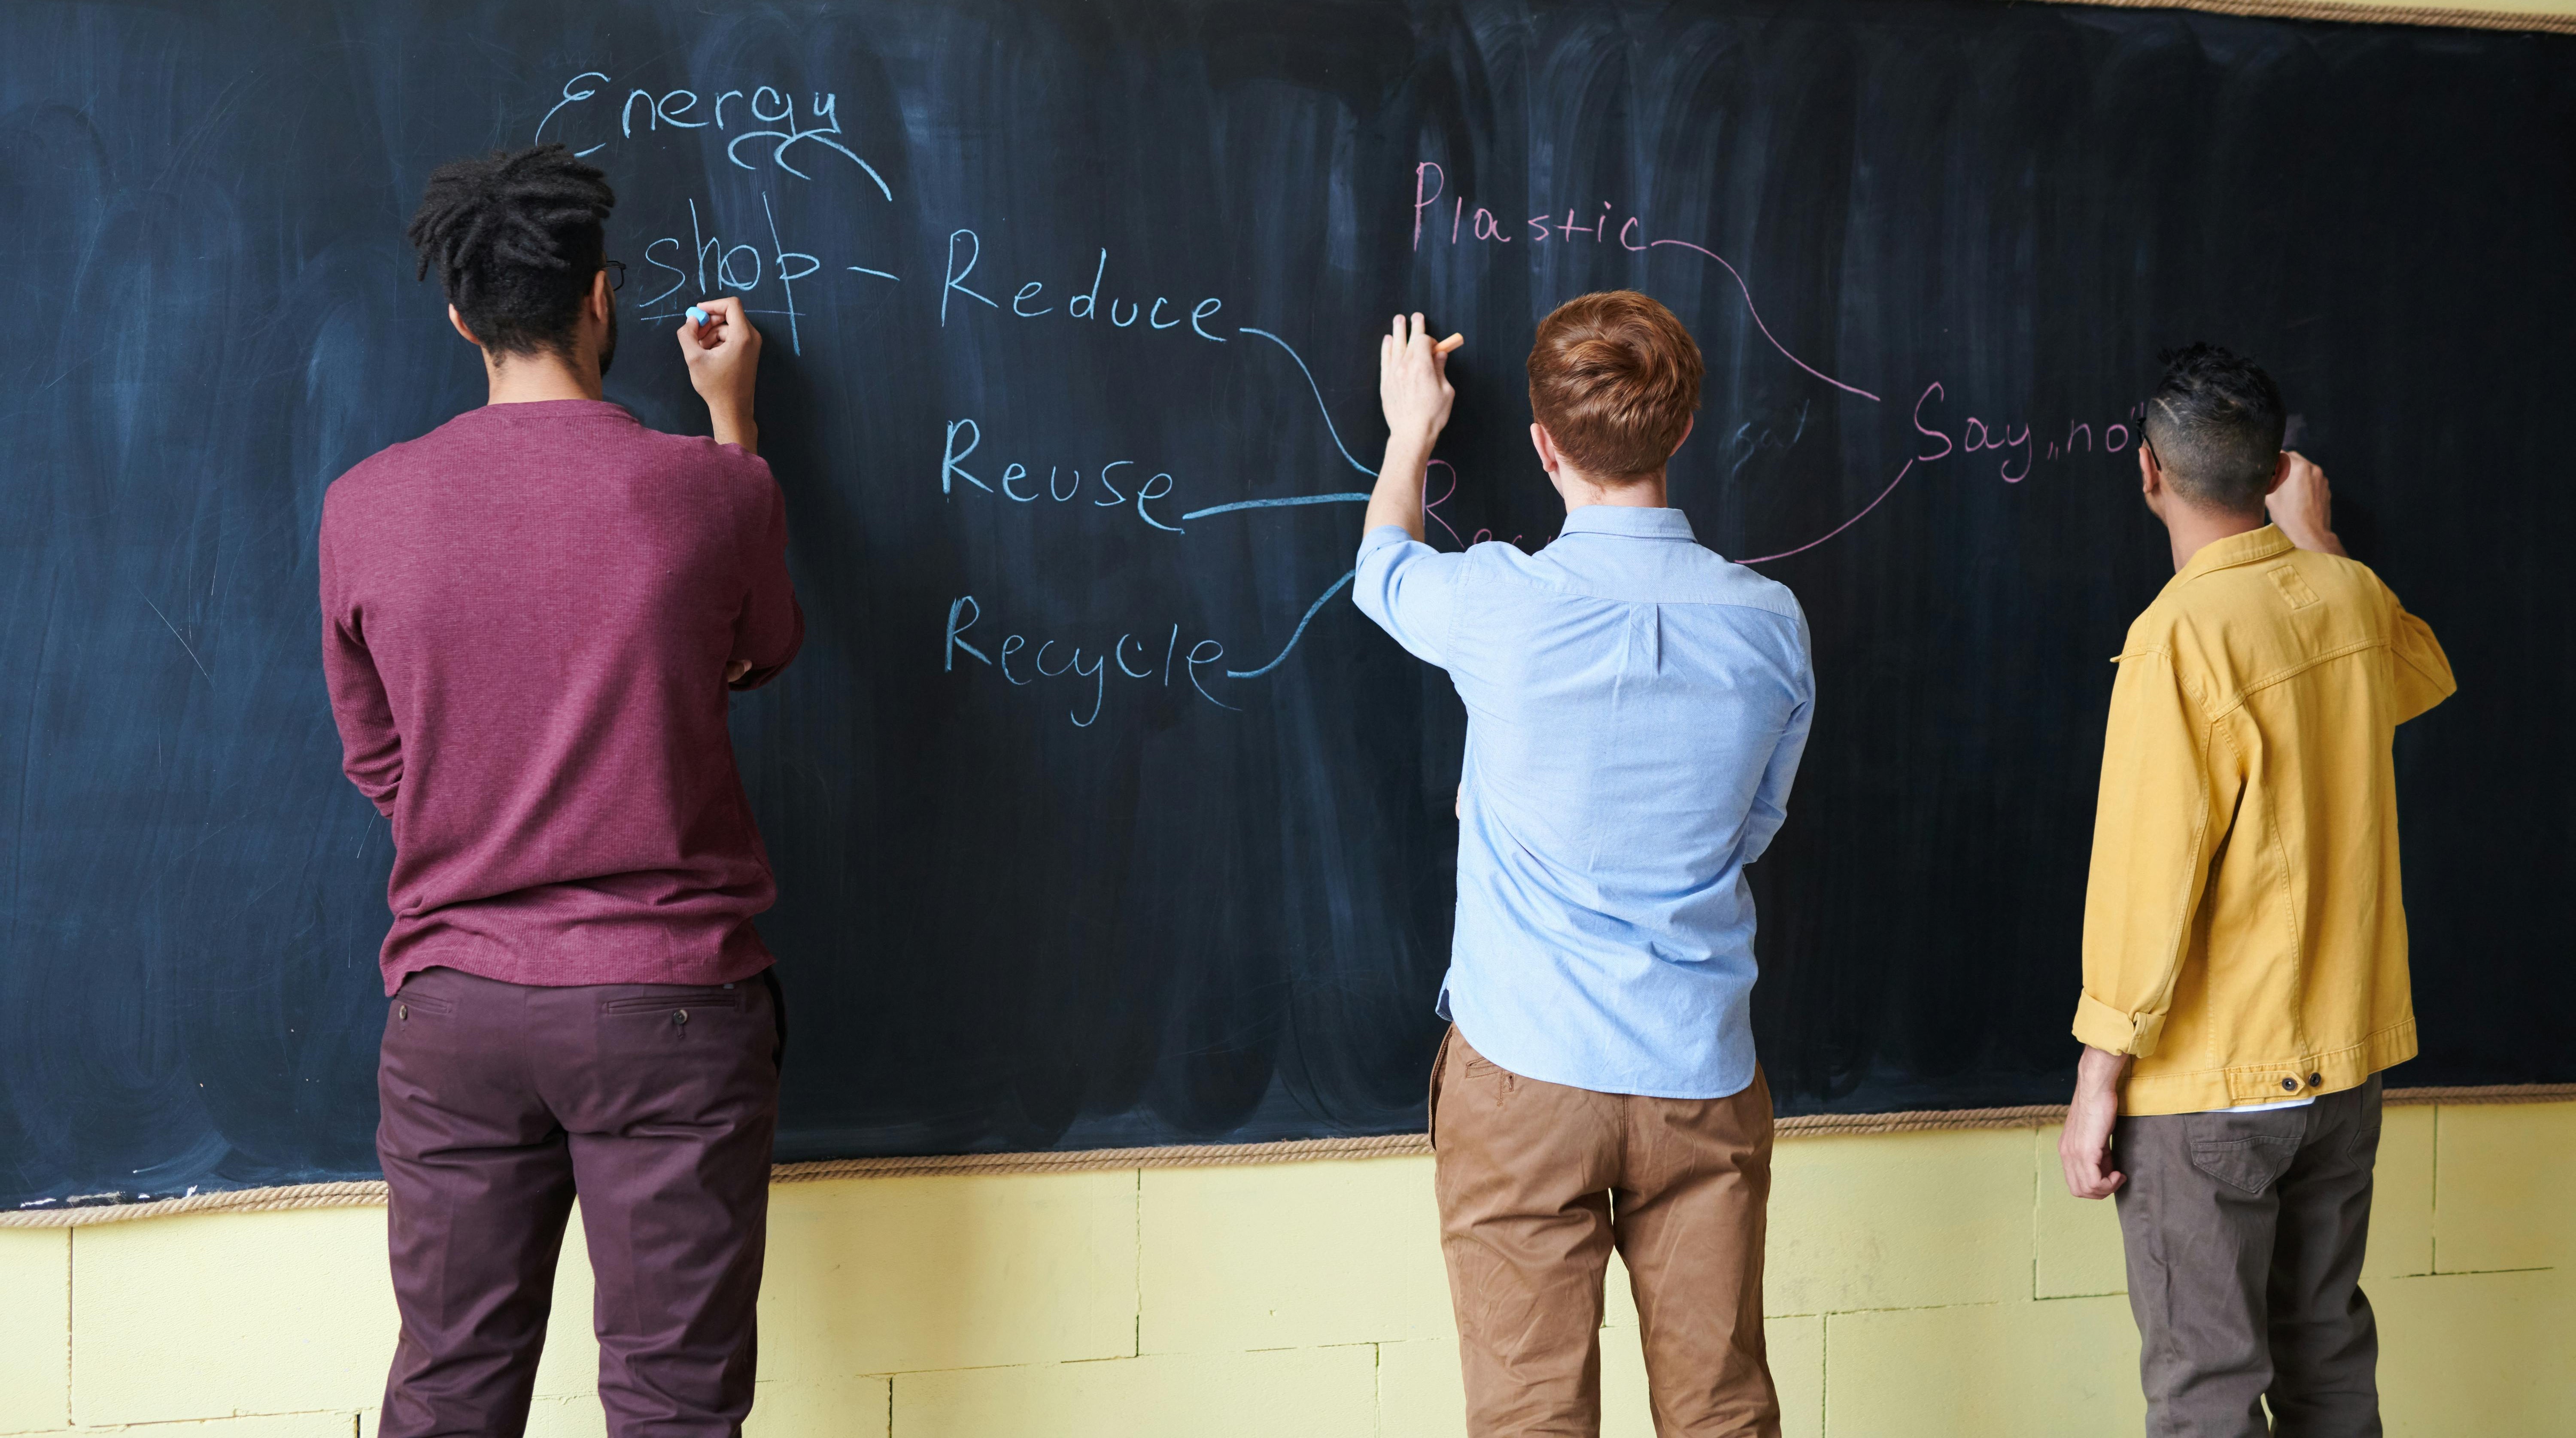 Energy
shop - Reduce
Reuse
Recycle
Plastic
Say „no"